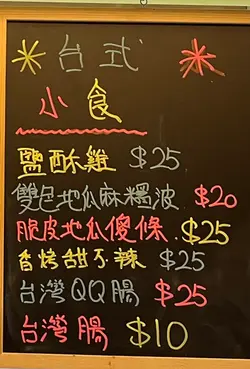 台式
小食
鹽酥雞 $25
雙色地瓜麻糬波 $20
脆皮地瓜傻條 $25
香烤甜不辣 $25
台灣QQ腸 $25
台灣腸 $10